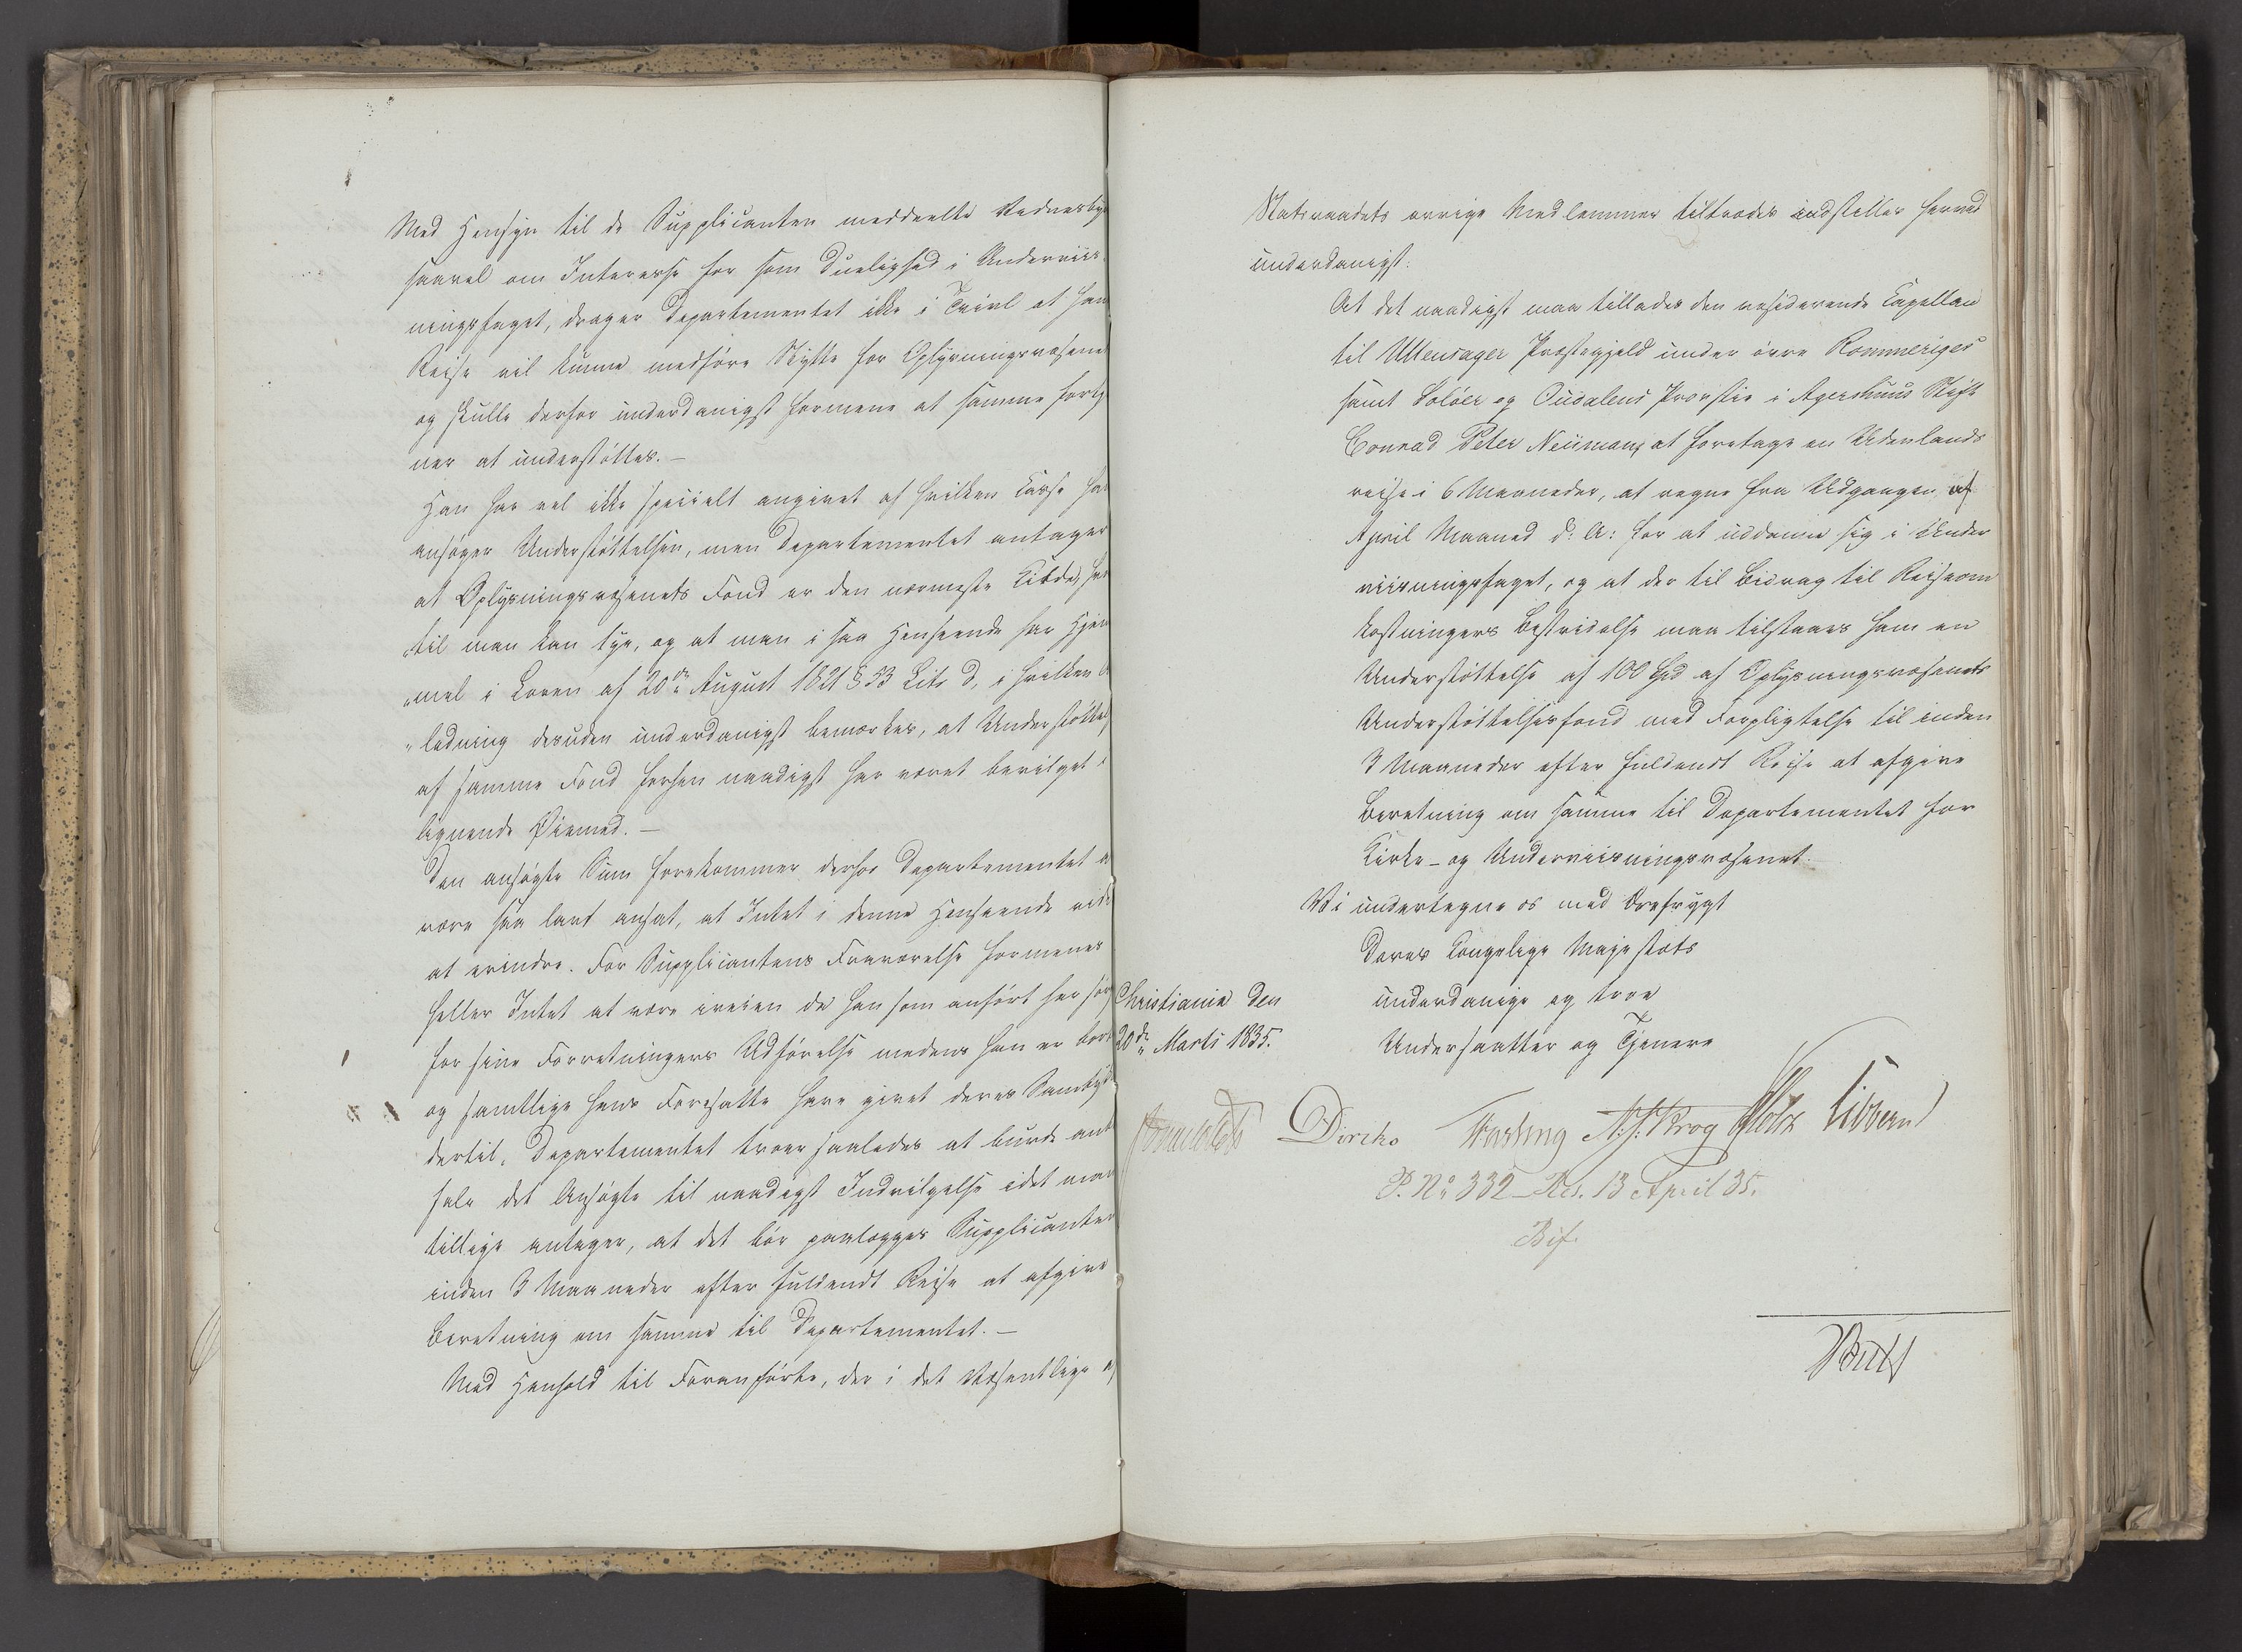 Med Hensyn til de Supplicanten meddeelte Vidnesby
saavel om Interesse for som Duelighed i Underviis¬
ningsfaget, drager Departementet ikke i Tvivl at han
Reise vil kunne medføre Nytte for Oplysningsvæsenet
og skulle derfor underdanigst formene at samme fortj
ner at understøttes.—
Han har vel ikke specielt angivet af hvilken Casse han
ansøger Understøttelsen, men Departementet antager
at Oplysningsvæsenets Fond er den nærmeste Kilde, hvor
til man kan tye, og at man i saa Henseende har Hjem
mel i Loven af 20de August 1821 § 33 Litr d, i hvilken
ledning desuden underdanigst bemærkes, at Understøttels
af samme Fond forhen naadigst har været bevilget i
lignende Øiemed.—
Den ansøgte Sum forekommer derhos Departementet a
være saa lavt ansat, at Intet i denne Henseende vid
at erindre. For Supplicantens Fraværelse formenes
heller Intet at være iveien da han som anført har sørg
for sine Forretningers Udførelse medens han er borte
og samtlige hans Foresatte have givet deres Samtyk
dertil. Departementet troer saaledes at burde anb
fale det Ansøgte til naadigst Indvilgelse idet man
tillige antager, at det bør paalægges Supplicanten
inden 3 Maaneder efter fuldendt Reise at afgive
Beretning om samme til Departementet.—
Med Henhold til Foranførte, der i det Væsentlige af
Statsraadets øvrige Medlemmer tiltrædes indstilles herved
underdanigst:
At det naadigst maa tillades den residerende Capellan
til Ullensager Præstegjeld under øvre Rommeriges
samt Soløer og Oudalens Provstie i Agershuus Stift
Conrad Peter Neuman, at foretage en Udenlands
reise i 6 Maaneder, at regne fra Udgangen af
April Maaned d: A: for at uddanne sig i Under
viisningsfaget, og at der til Bidrag til Reiseom
kostningers Bestridelse maa tilstaaes ham en
Understøttelse af 100 Spd af Oplysningsvæsenets
Understøttelsesfond med Forpligtelse til inden
3 Maaneder efter fuldendt Reise at afgive
Beretning om samme til Departementet for
Kirke- og Underviisningsvæsenet.
Vi undertegne os med Ærefrygt
Deres Kongelige Majestæts
underdanige og troe
Undersaatter og Tjenere
Christiania den
20de Marts 1835.
Diriks Fasting N. J. Krog Holst Vibbern
P. No 332 - Res. 13 April 35.
Bif.